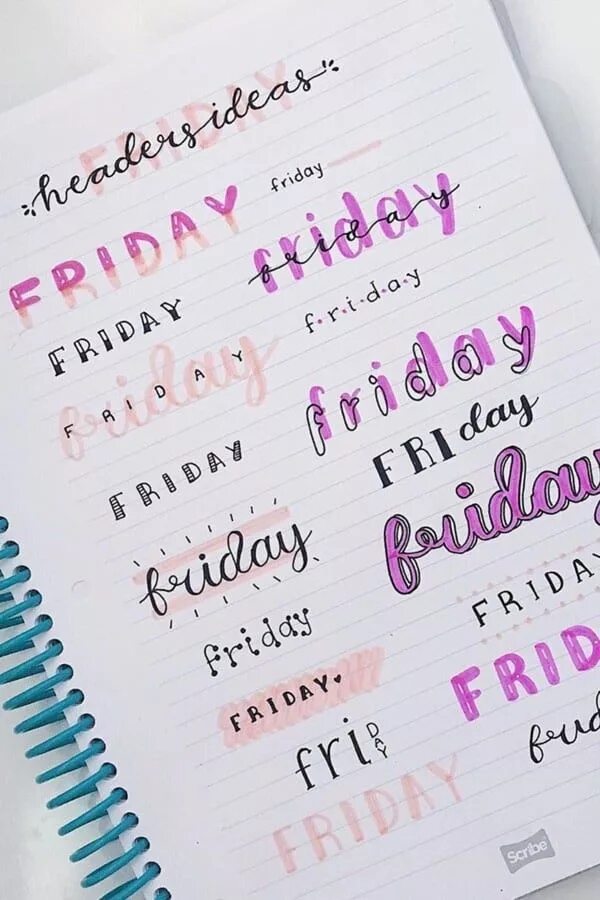 FRIDAY
headers ideas
FRIDAY
FRIDAY
friday
FRIDAY
FRIDAY
friday
friday
FRIDAY♥
friDAY
FRIDAY
friday
friday
friday
f·r·i·d·a·y
friday
FRIday
friday
FRIDAY
FRID
frid
Scribe